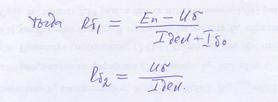 тогда Rб₁ = (Eп − Uб) / (Iдел + Iб₀)
Rб₂ = Uб / Iдел.